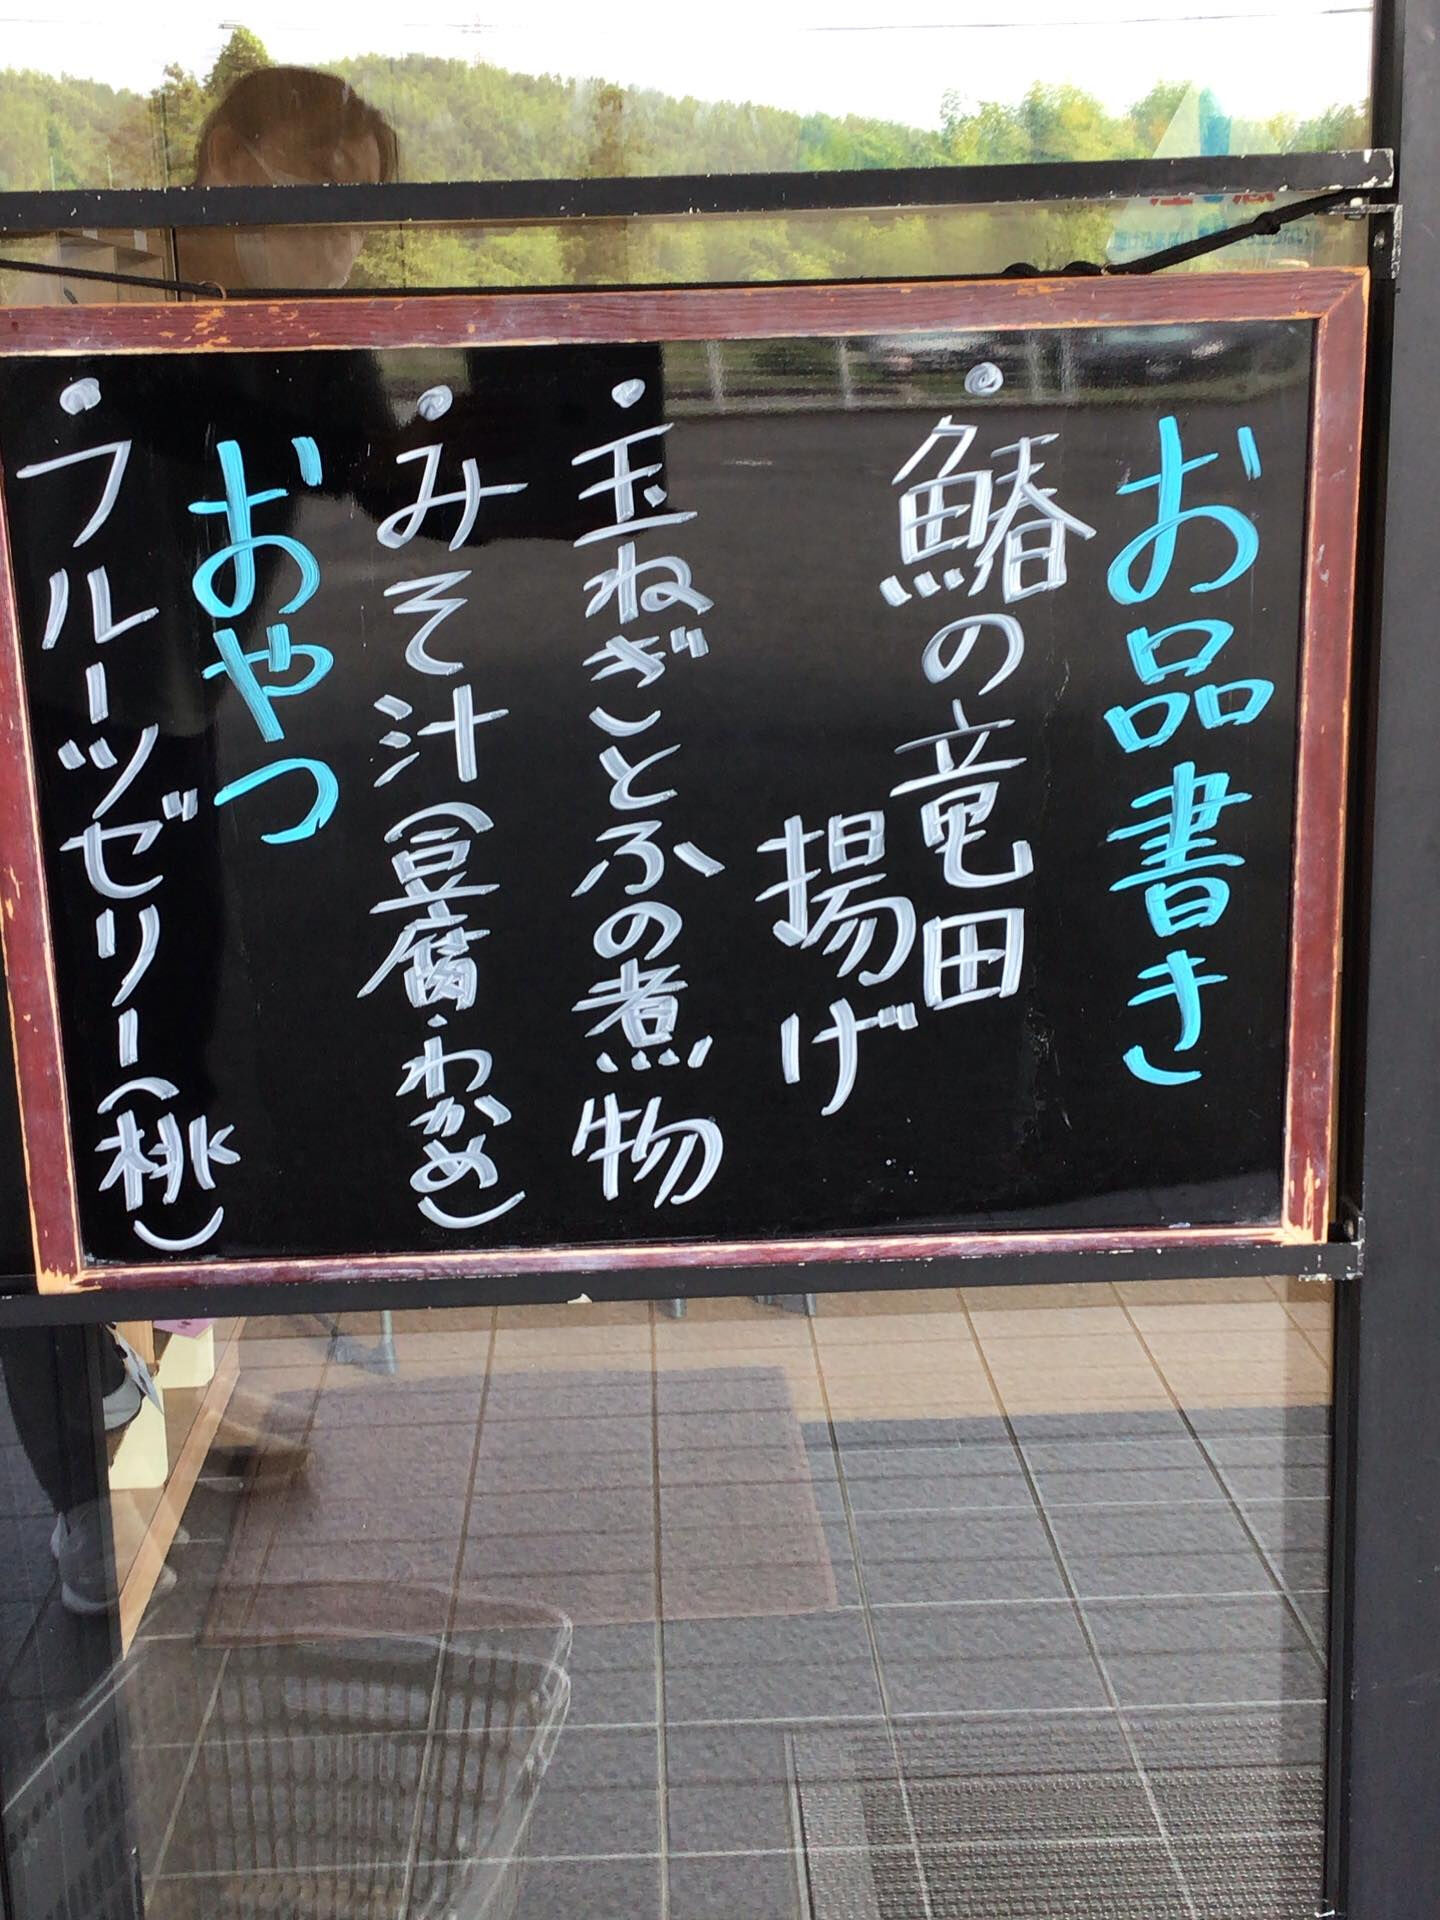 お品書き
・鰆の竜田
揚げ
・玉ねぎとふの煮物
・みそ汁(豆腐・わかめ)
おやつ
・フルーツゼリー(桃)